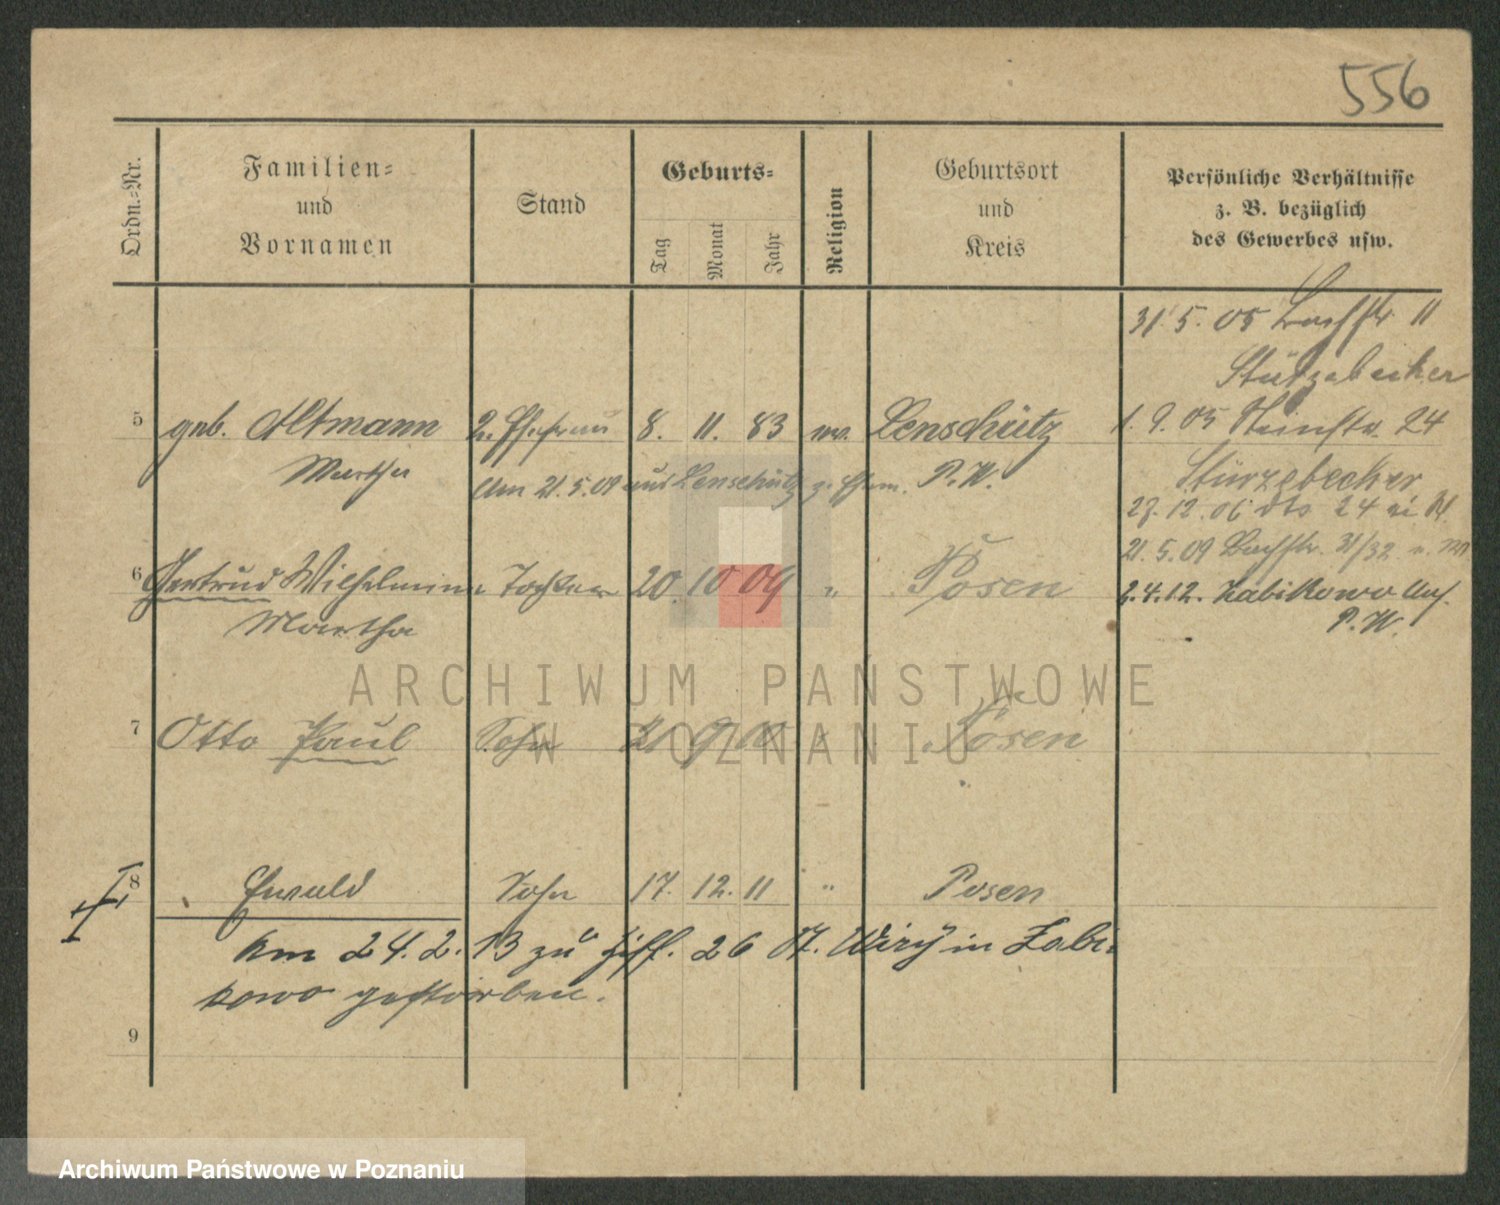 556
Ordn.-Nr.
Familien-
und
Vornamen
Stand
Geburts-
Tag
Monat
Jahr
Religion
Geburtsort
und
Kreis
Persönliche Verhältnisse
z. B. bezüglich
des Gewerbes usw.
31. 5. 05 Bachstr 11
Stürzebecher
5 geb. Altmann 2. Ehefrau 8. 11. 83 ev. Lenschütz 1. 9. 05 24
Martha P. W. Stürzebecher
Am 21.5.09 aus Lenschütz z. Ehem.
27. 12. 06 dto 24
21. 5. 09 Bachstr. 31/32
6 Gertrud Wilhelmine Tochter 20. 10 09 " Posen 2.4.12. Zabikowo
Martha P. W.
7 Otto Paul Sohn 21 9 10 " Posen
8 Ewald Sohn 17. 12. 11 " Posen
Am 24. 2. 13 zu Ziff. 26 St. Wiry in Zabi-
kowo gestorben.
9
ARCHIWUM PAŃSTWOWE
W POZNANIU
Archiwum Państwowe w Poznaniu